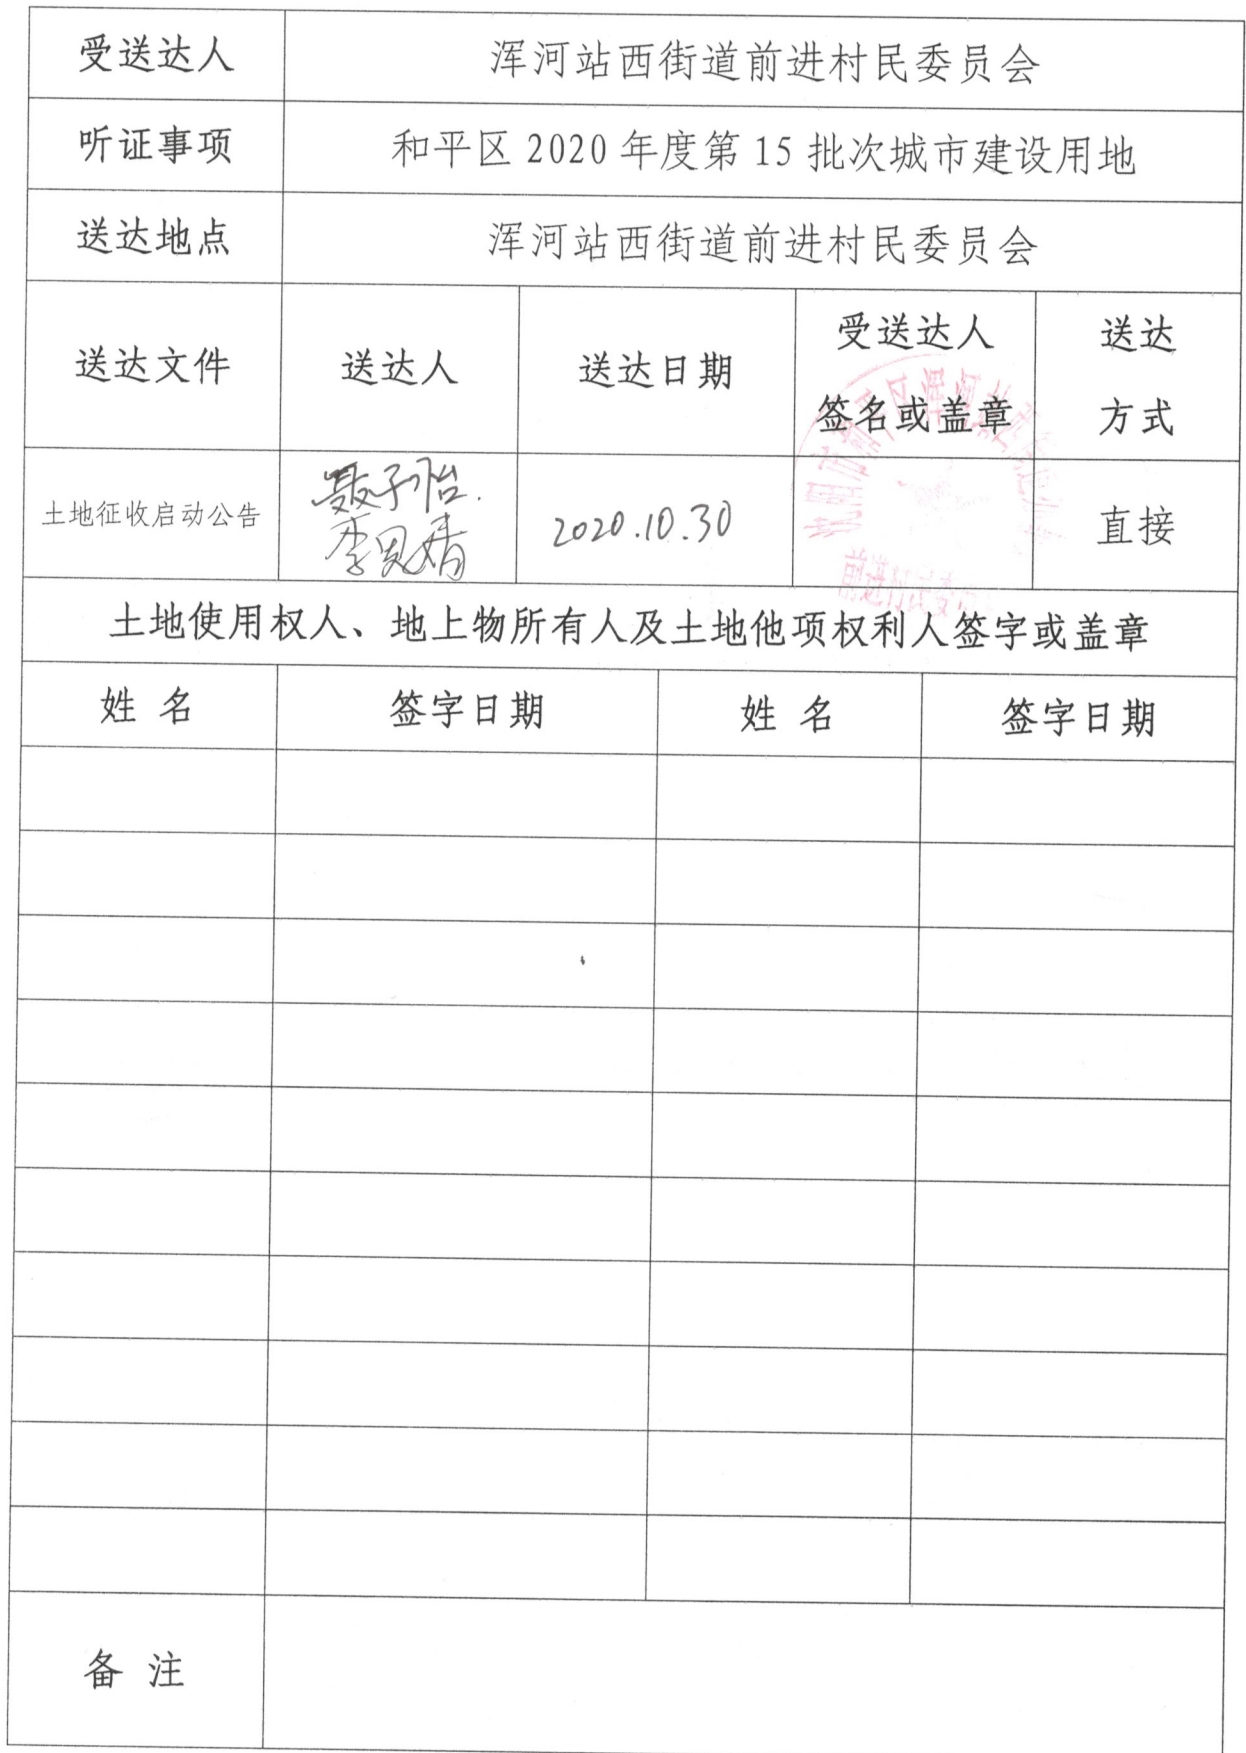 受送达人 浑河站西街道前进村民委员会
听证事项 和平区 2020 年度第 15 批次城市建设用地
送达地点 浑河站西街道前进村民委员会
送达文件 送达人 送达日期 受送达人 签名或盖章 送达 方式
土地征收启动公告 聂子怡. 2020.10.30 直接
前进村民委
土地使用权人、地上物所有人及土地他项权利人签字或盖章
姓 名 签字日期 姓 名 签字日期
备 注